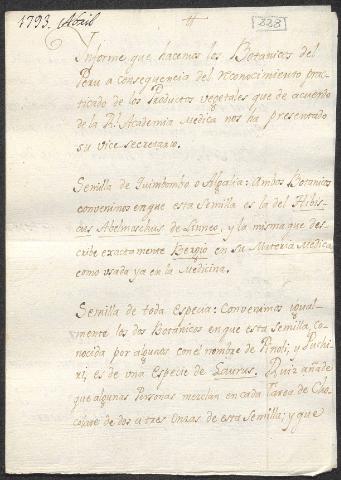 1793. Abril
228
Informe que hacemos los Botanicos del
Peru a consequencia del reconocimiento prac-
ticado de los Productos vegetales que de acuerdo
de la Rl. Academia Medica nos ha presentado
su vice secretario.
Semilla de Quimbombo o Algalia: Ambos Botanicos
convenimos en que esta Semilla es la del Hibis-
cus Abelmoschus de Linneo, y la misma que des-
cribe exactamente Bergio en su Materia Medica
como usada ya en la Medicina.
Semilla de toda especia: Convenimos igual-
mente los dos Botánicos en que esta semilla, co-
nocida por algunos con el nombre de Pinoli, y Puchi-
ri, es de una Especie de Laurus. Ruiz añade
que algunas Personas mezclan en cada Tarea de Cho-
colate de dos a tres onzas de esta Semilla; y que